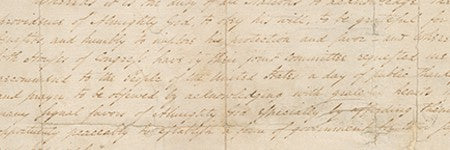 it is the duty of all Nations to
providence of Almighty God, to obey his will, to be grateful for
and humbly to implore his protection and favor, and Whereas
both Houses of Congress have by their joint Committee requested me
recommend to the People of the United States a day of public
and prayer to be observed by acknowledging with grateful hearts
many signal favors of Almighty God especially by affording them
opportunity peaceably to establish a form of government for their